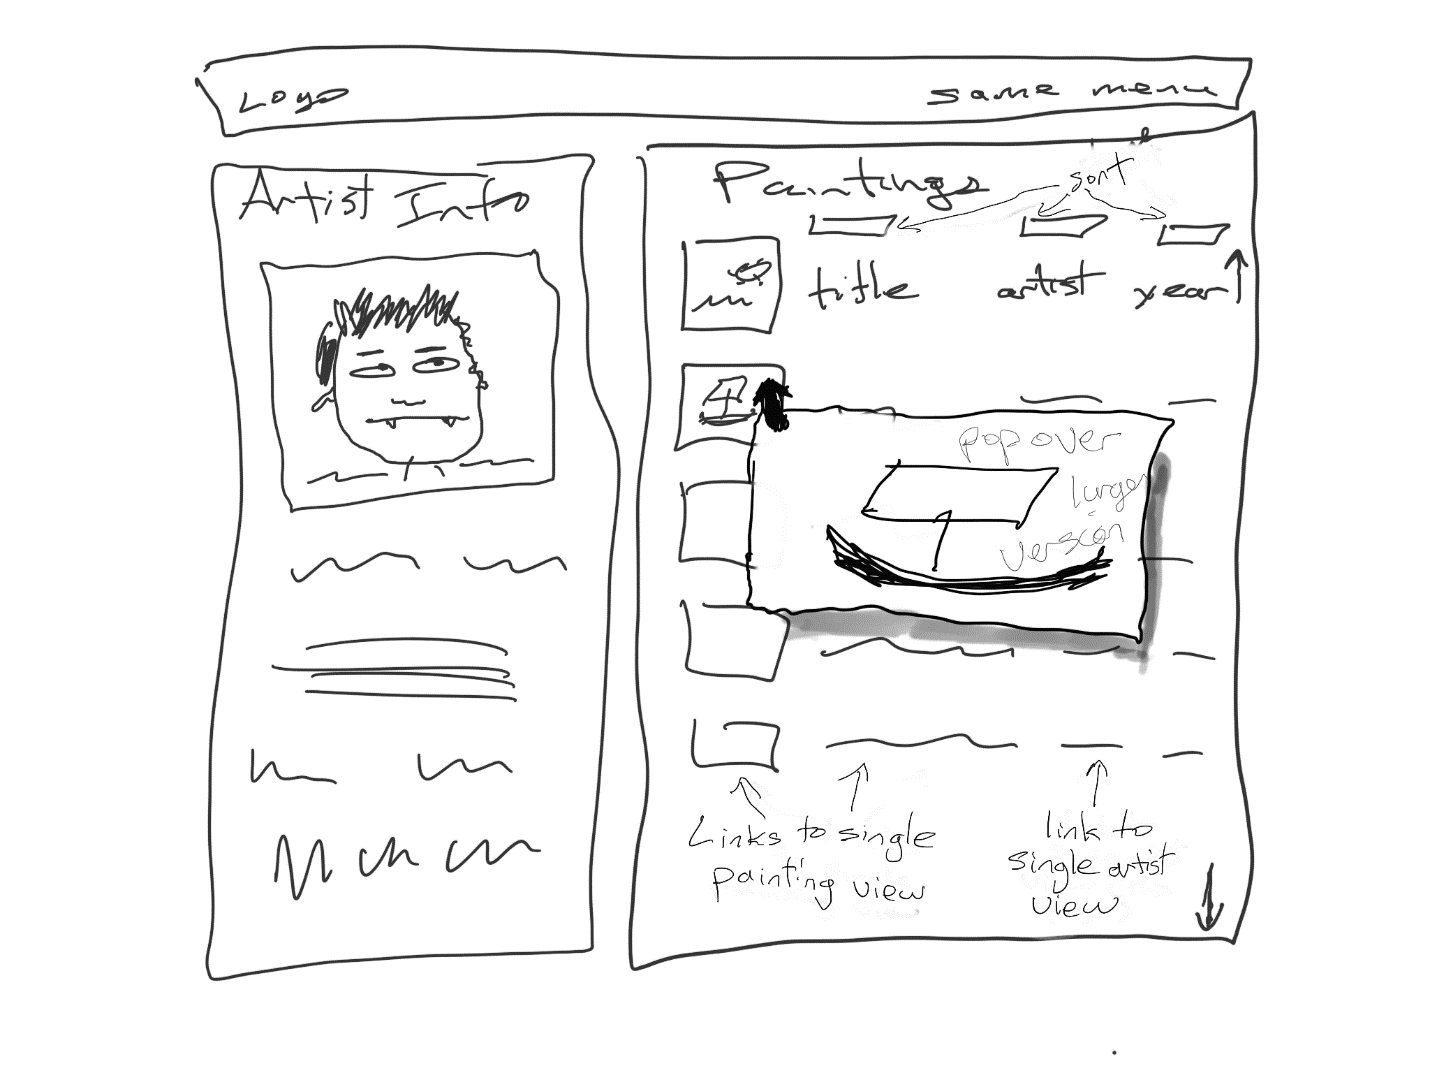 Logo
same menu
Artist Info
Paintings
sort
title artist year
pop over
larger
version
Links to single
painting view
link to
single artist
view